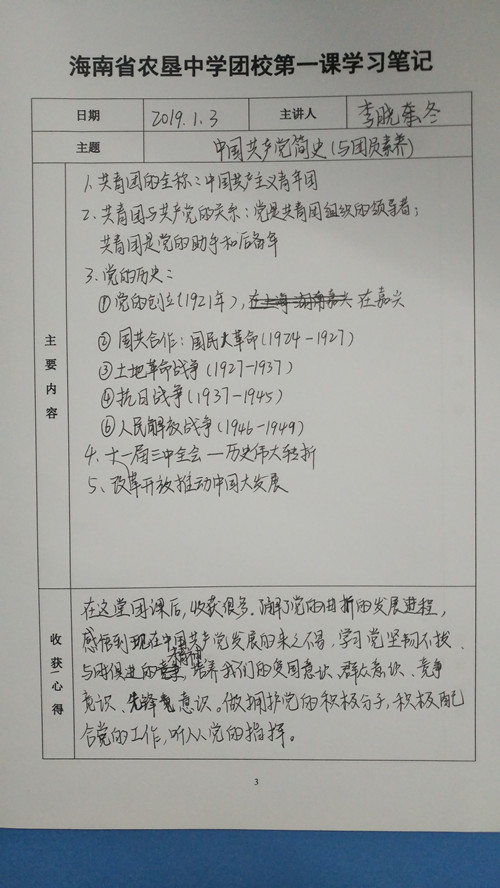 海南省农垦中学团校第一课学习笔记
日期 2019.1.3 主讲人 李晓冬
主题 中国共产党简史(与团员素养)
主要内容
1.共青团的全称:中国共产主义青年团
2.共青团与共产党的关系:党是共青团组织的领导者;
共青团是党的助手和后备军
3.党的历史:
①党的创立(1921年),在嘉兴
②国共合作:国民大革命(1924-1927)
③土地革命战争(1927-1937)
④抗日战争(1937-1945)
⑥人民解放战争(1946-1949)
4.十一届三中全会—历史伟大转折
5、改革开放推动中国大发展
收获/心得
在这堂团课后,收获很多.了解了党的曲折的发展进程,
感悟到现在中国共产党发展的来之不易,学习党坚韧不拔、
与时俱进的精神,培养我们的爱国意识、群众意识、竞争
意识、先锋意识。做拥护党的积极分子,积极配
合党的工作,听从党的指挥。
3